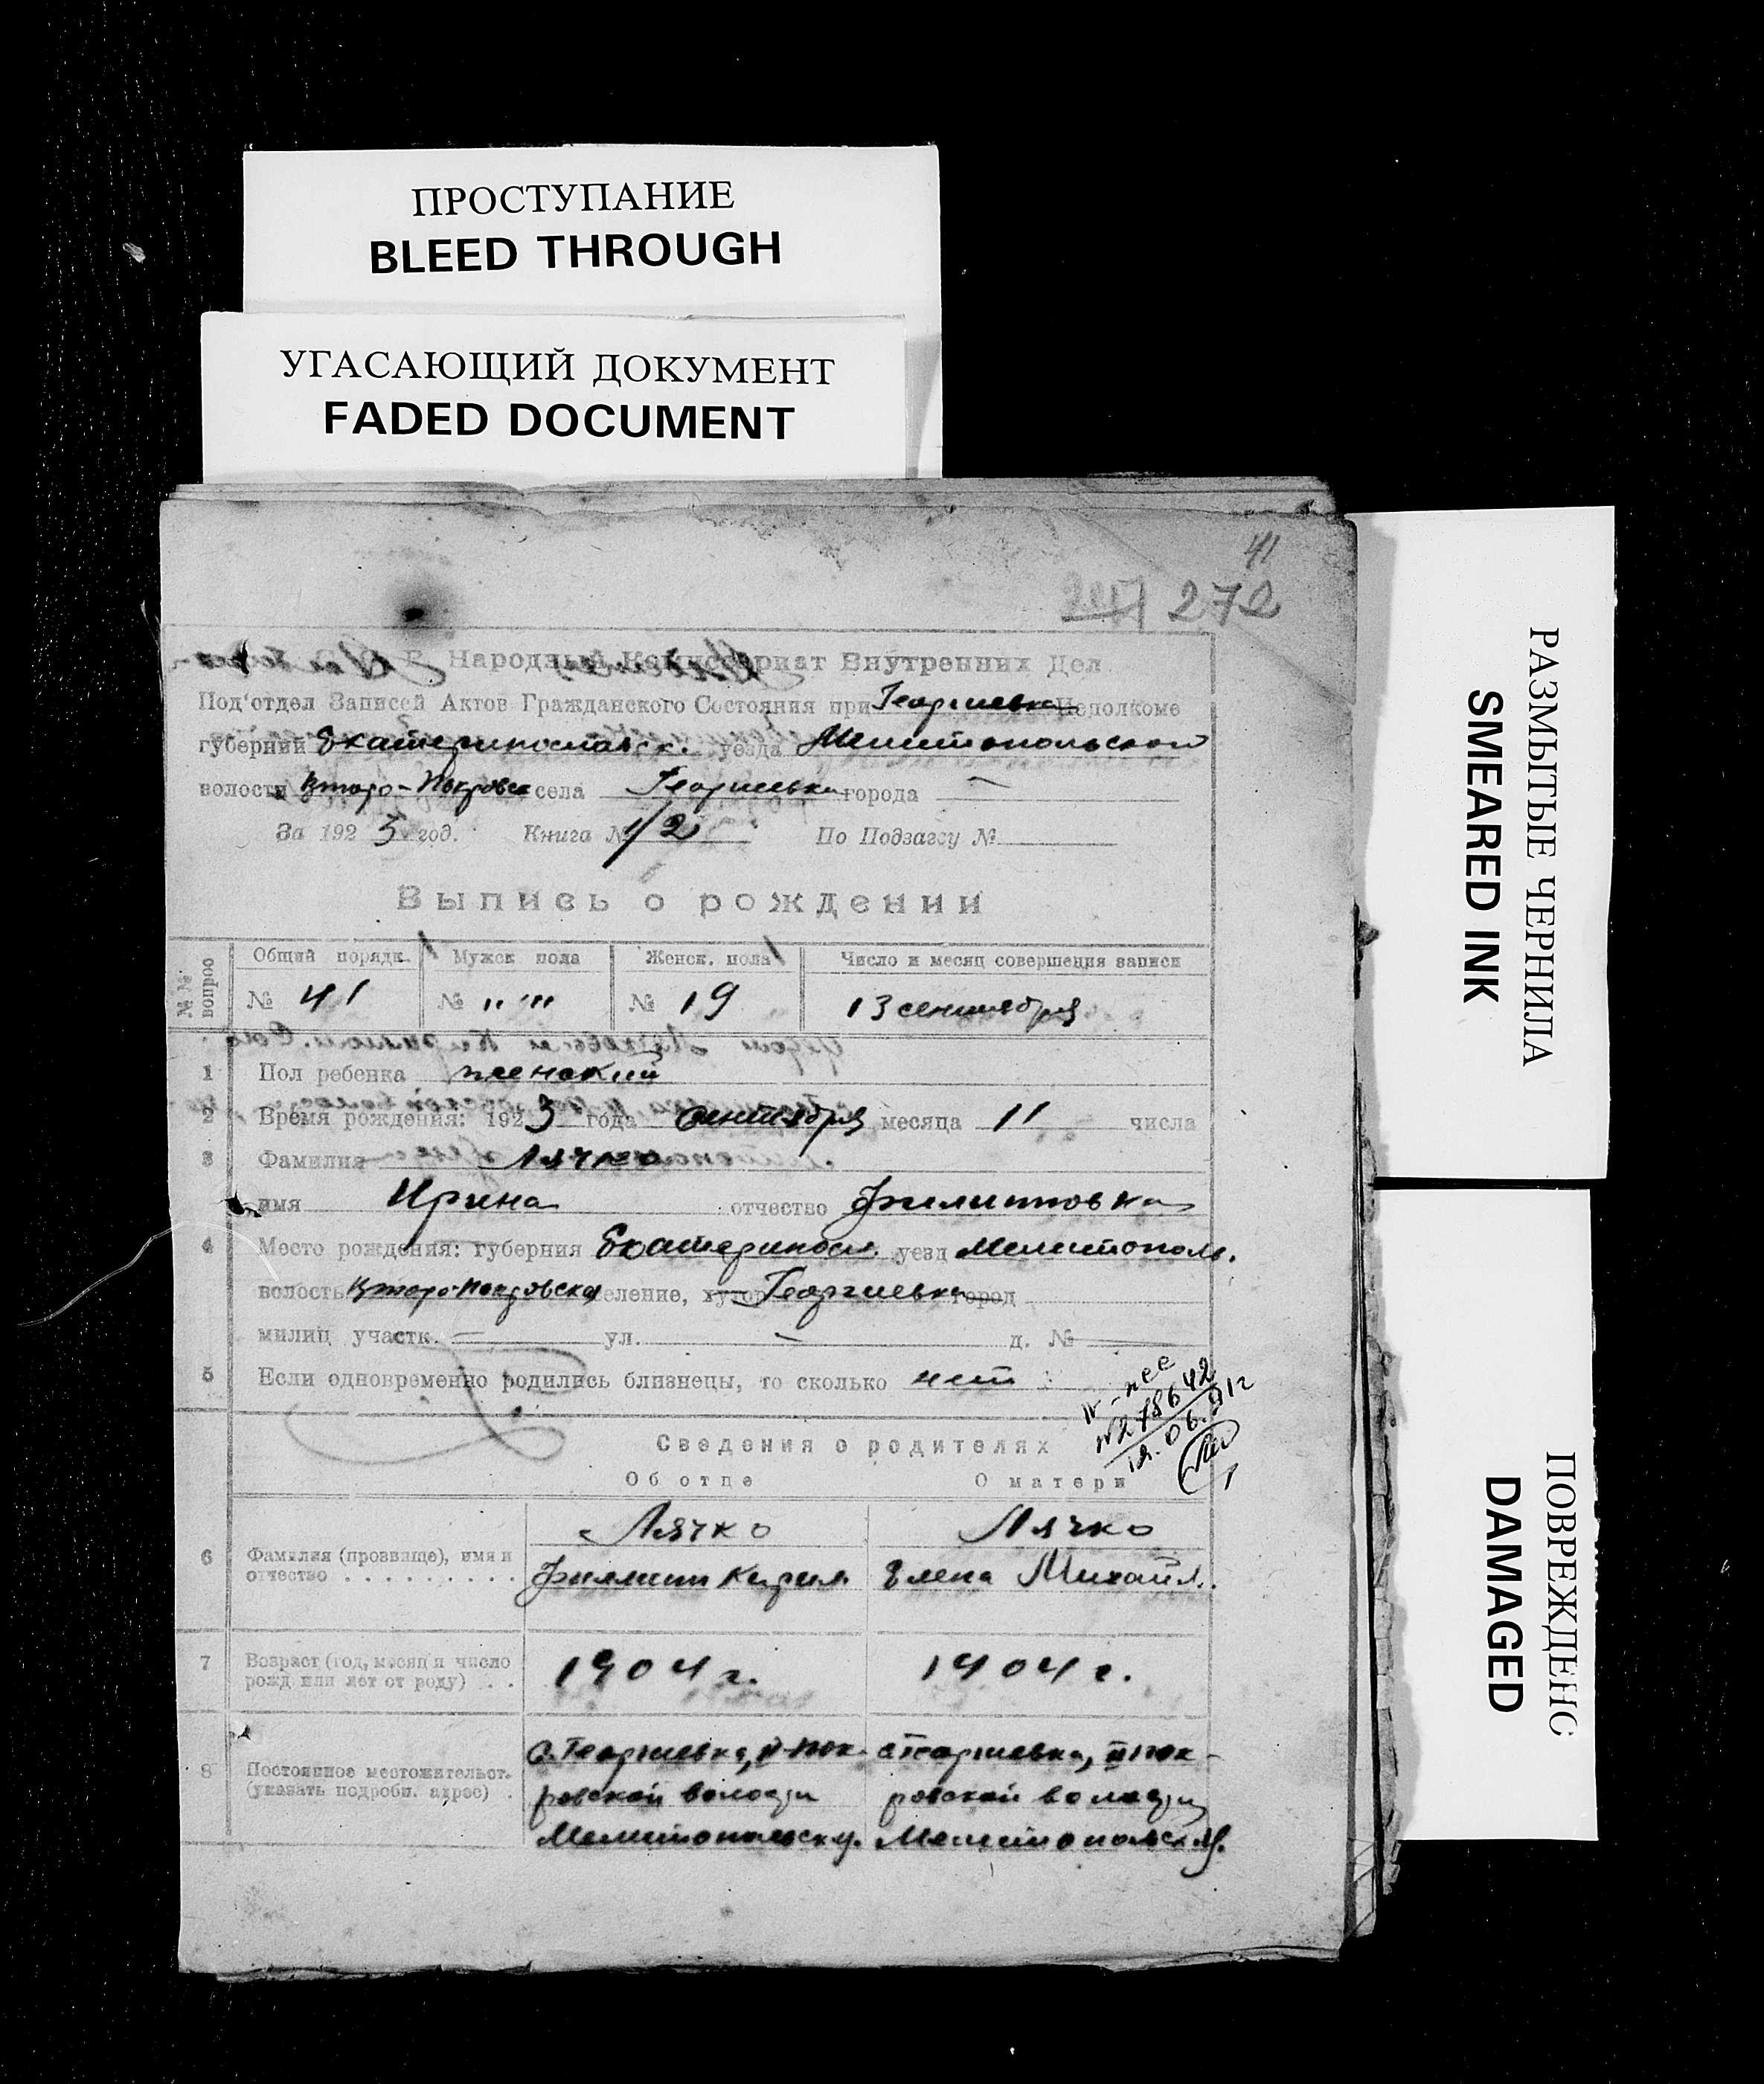 ПРОСТУПАНИЕ
BLEED THROUGH
УГАСАЮЩИЙ ДОКУМЕНТ
FADED DOCUMENT
РАЗМЫТЫЕ ЧЕРНИЛА
SMEARED INK
ПОВРЕЖДЕНС
DAMAGED
41
272
Народный Комиссариат Внутренних Дел
Под'отдел Записей Актов Гражданского Состояния при Георгиевка Исполкоме
губернии Екатеринославск. уезда Мелитопольского
волости Второ-Покровск села Георгиевка города —
За 1923 год. Книга № 1/2 По Подзагсу №
Выпись о рождении
№№ вопрос
Общий порядк. Мужск пола Женск. пола Число и месяц совершения записи
№ 41 № " "" № 19 13 сентября
1 Пол ребенка женский
2 Время рождения: 1923 года сентября месяца 11 числа
3 Фамилия Лячко
имя Ирина отчество Филиповна
4 Место рождения: губерния Екатериносл. уезд Мелитополь.
волость Второ-Покровская селение, хутор Георгиевка город
милиц участк. — ул. — д. № —
5 Если одновременно родились близнецы, то сколько нет
№278642
Сведения о родителях
Об отце О матери
6 Фамилия (прозвище), имя и отчество
Лячко Лячко
Филипп Кирил. Елена Михайл.
7 Возраст (год, месяц и число рожд или лет от роду)
1904 г. 1904 г.
8 Постоянное местожительст. (указать подробн. адрес)
с. Георгиевка, II-Пок- с Георгиевка, II Пок-
ровской волости ровской волости
Мелитопольск у. Мелитопольск у.